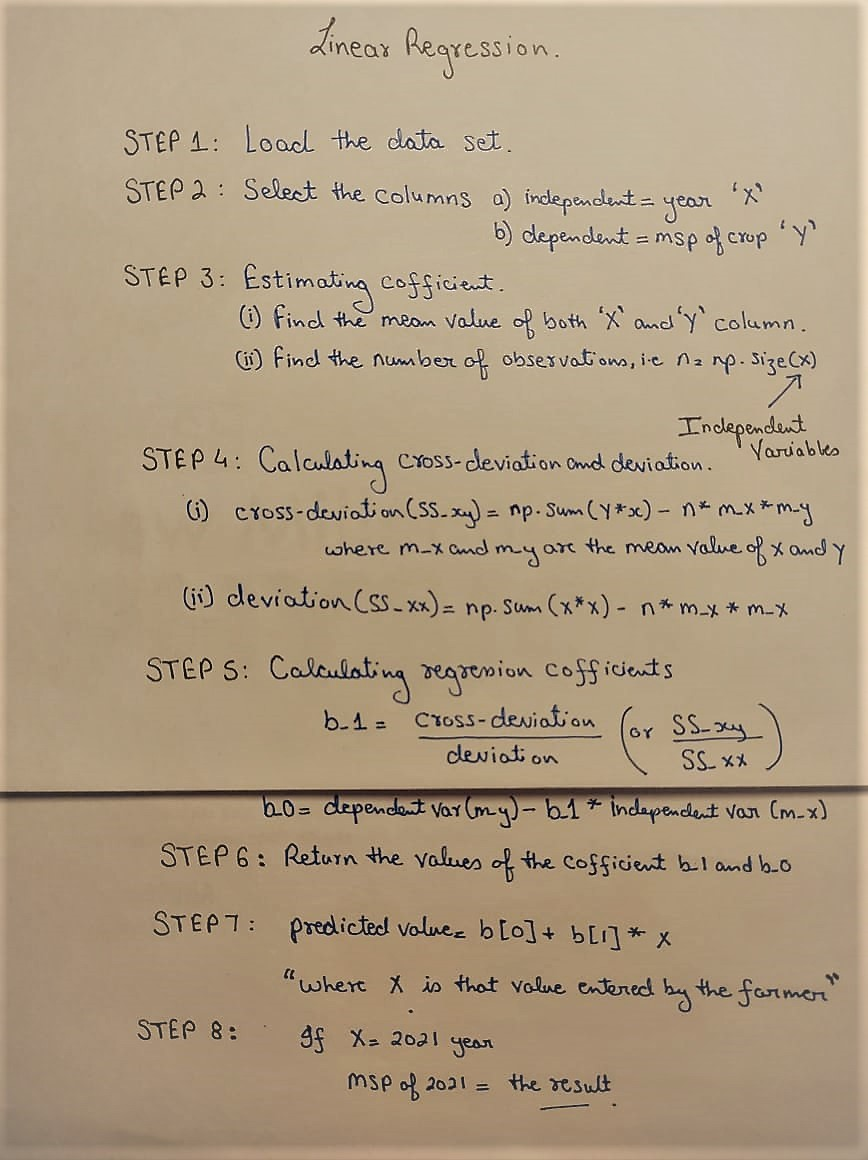 Linear Regression.
STEP 1: Load the data set.
STEP 2: Select the columns a) independent = year 'X'
b) dependent = msp of crop 'Y'
STEP 3: Estimating cofficient.
(i) find the mean value of both 'X' and 'Y' column.
(ii) find the number of observations, i.e n = np.size(x)
Independent
Variables
STEP 4: Calculating cross-deviation and deviation.
(i) cross-deviation (SS_xy) = np.sum(Y*x) - n* m_x * m_y
where m_x and m_y are the mean value of x and y
(ii) deviation (SS_xx) = np.sum(x*x) - n* m_x * m_x
STEP 5: Calculating regression cofficients
b_1 = cross-deviation (or SS_xy
deviation SS_xx)
b0 = dependent var(m_y) - b1 * independent var (m_x)
STEP 6: Return the values of the cofficient b_1 and b_0
STEP 7: predicted value = b[0] + b[1] * x
"where X is that value entered by the farmer"
STEP 8: If X = 2021 year
MSP of 2021 = the result.